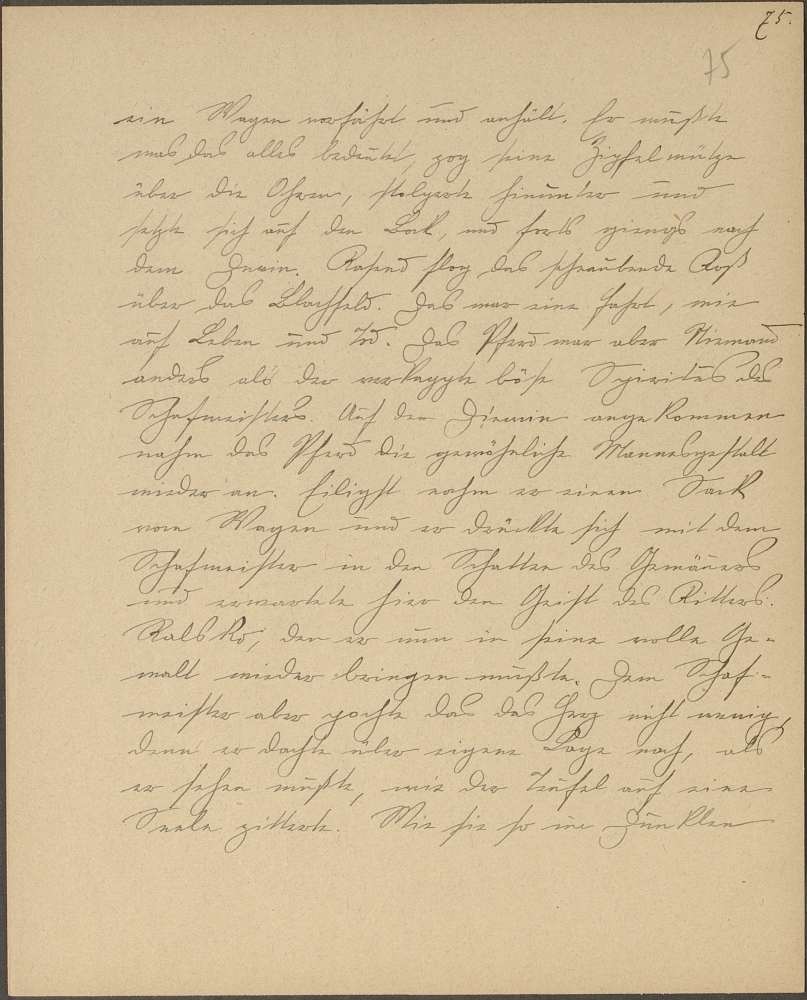 75.
75
ein Wagen vorfährt und anhält. Er wußte
was das alles bedeutet, zog seine Zipfelmütze
über die Ohren, stolperte hinunter und
setzte sich auf den Bock, und forts giengs nach
dem Rasend flog das schnaubende Roß
über das Blachfeld. Das war eine Fahrt, wie
auf Leben und Tod. Das Pferd war aber Niemand
anders als der verkappte böse Spiritus des
Schafmeisters. Auf den angekommen
nahm das Pferd die gewöhnliche Mannesgestalt
wieder an. Eiligst nahm er einen Sack
vom Wagen und er drückte sich mit dem
Schafmeister in den Schatten des Gemäuers
und erwartete hier den Geist des Ritters
Ralsko, den er nun in seine volle Ge-
walt wieder bringen mußte. Dem Schaf-
meister aber pochte das das Herz nicht wenig,
denn er dachte über eigene Lage nach, als
er sehen mußte, wie der Teufel auf eine
Seele zitterte. Wie sie so im Dunklen